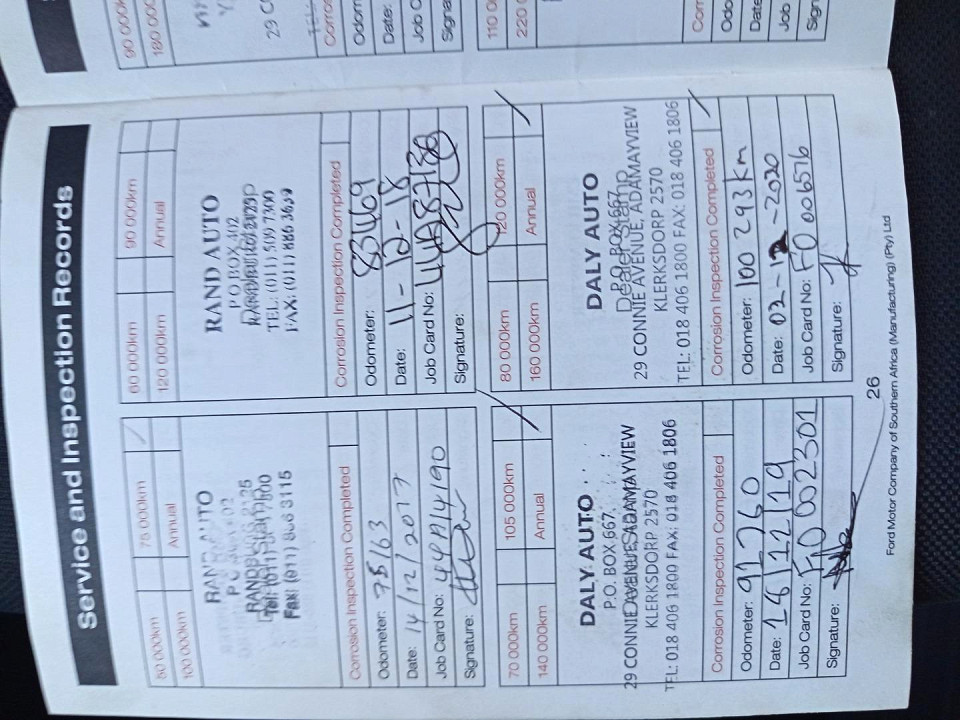 Service and Inspection Records
50 000km
75 000km
100 000km
Annual
RAND AUTO
Dealer Stamp
FAX: (011) 886 3115
Corrosion Inspection Completed
Odometer: 75163
Date: 14/12/2017
Job Card No: 44A14190
Signature:
60 000km
90 000km
120 000km
Annual
RAND AUTO
P O BOX 402
TEL: (011) 509 7300
FAX: (011) 886 3639
Corrosion Inspection Completed
Odometer: 83469
Date: 11-12-18
Job Card No: 44A87138
Signature:
70 000km
105 000km
140 000km
Annual
DALY AUTO
P.O. BOX 667
29 CONNIE AVENUE, ADAMAYVIEW
KLERKSDORP 2570
TEL: 018 406 1800 FAX: 018 406 1806
Corrosion Inspection Completed
Odometer: 91760
Date: 18/12/19
Job Card No: F0 002301
Signature:
80 000km
120 000km
160 000km
Annual
DALY AUTO
P.O. BOX 667
Dealer Stamp
29 CONNIE AVENUE, ADAMAYVIEW
KLERKSDORP 2570
TEL: 018 406 1800 FAX: 018 406 1806
Corrosion Inspection Completed
Odometer: 100 293km
Date: 02-12-2020
Job Card No: F0 006576
Signature:
26
Ford Motor Company of Southern Africa (Manufacturing) (Pty) Ltd
90 000k
180 000
29 CO
Corros
Odom
Date:
Job C
Signa
110 0
220 0
Corr
Odo
Date
Job
Sign